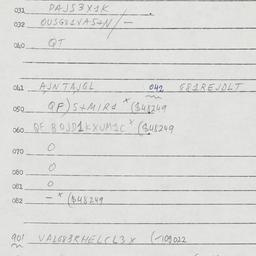 031 DAJS3X1K
032 OUSG81VAS+N/—
040 QT
041 AJNTAJGL 042 G81REJDLT
050 QF)S+MIRd * ($48249
060 QF BOJD1KXUM1C * ($48249
070 O
080 O
081 O
082 — * ($48249
901 VALG83RHELCL3X (-109022